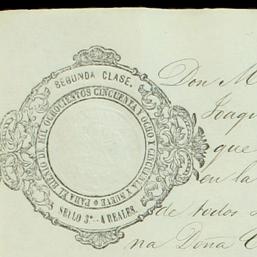 SEGUNDA CLASE.
PARA EL BIENIO DE MIL OCHOCIENTOS CINCUENTA Y OCHO Y CINCUENTA Y NUEVE
SELLO 3º. 4 REALES.
Don M
Joaqu
que
en la
de todos
na Doña C